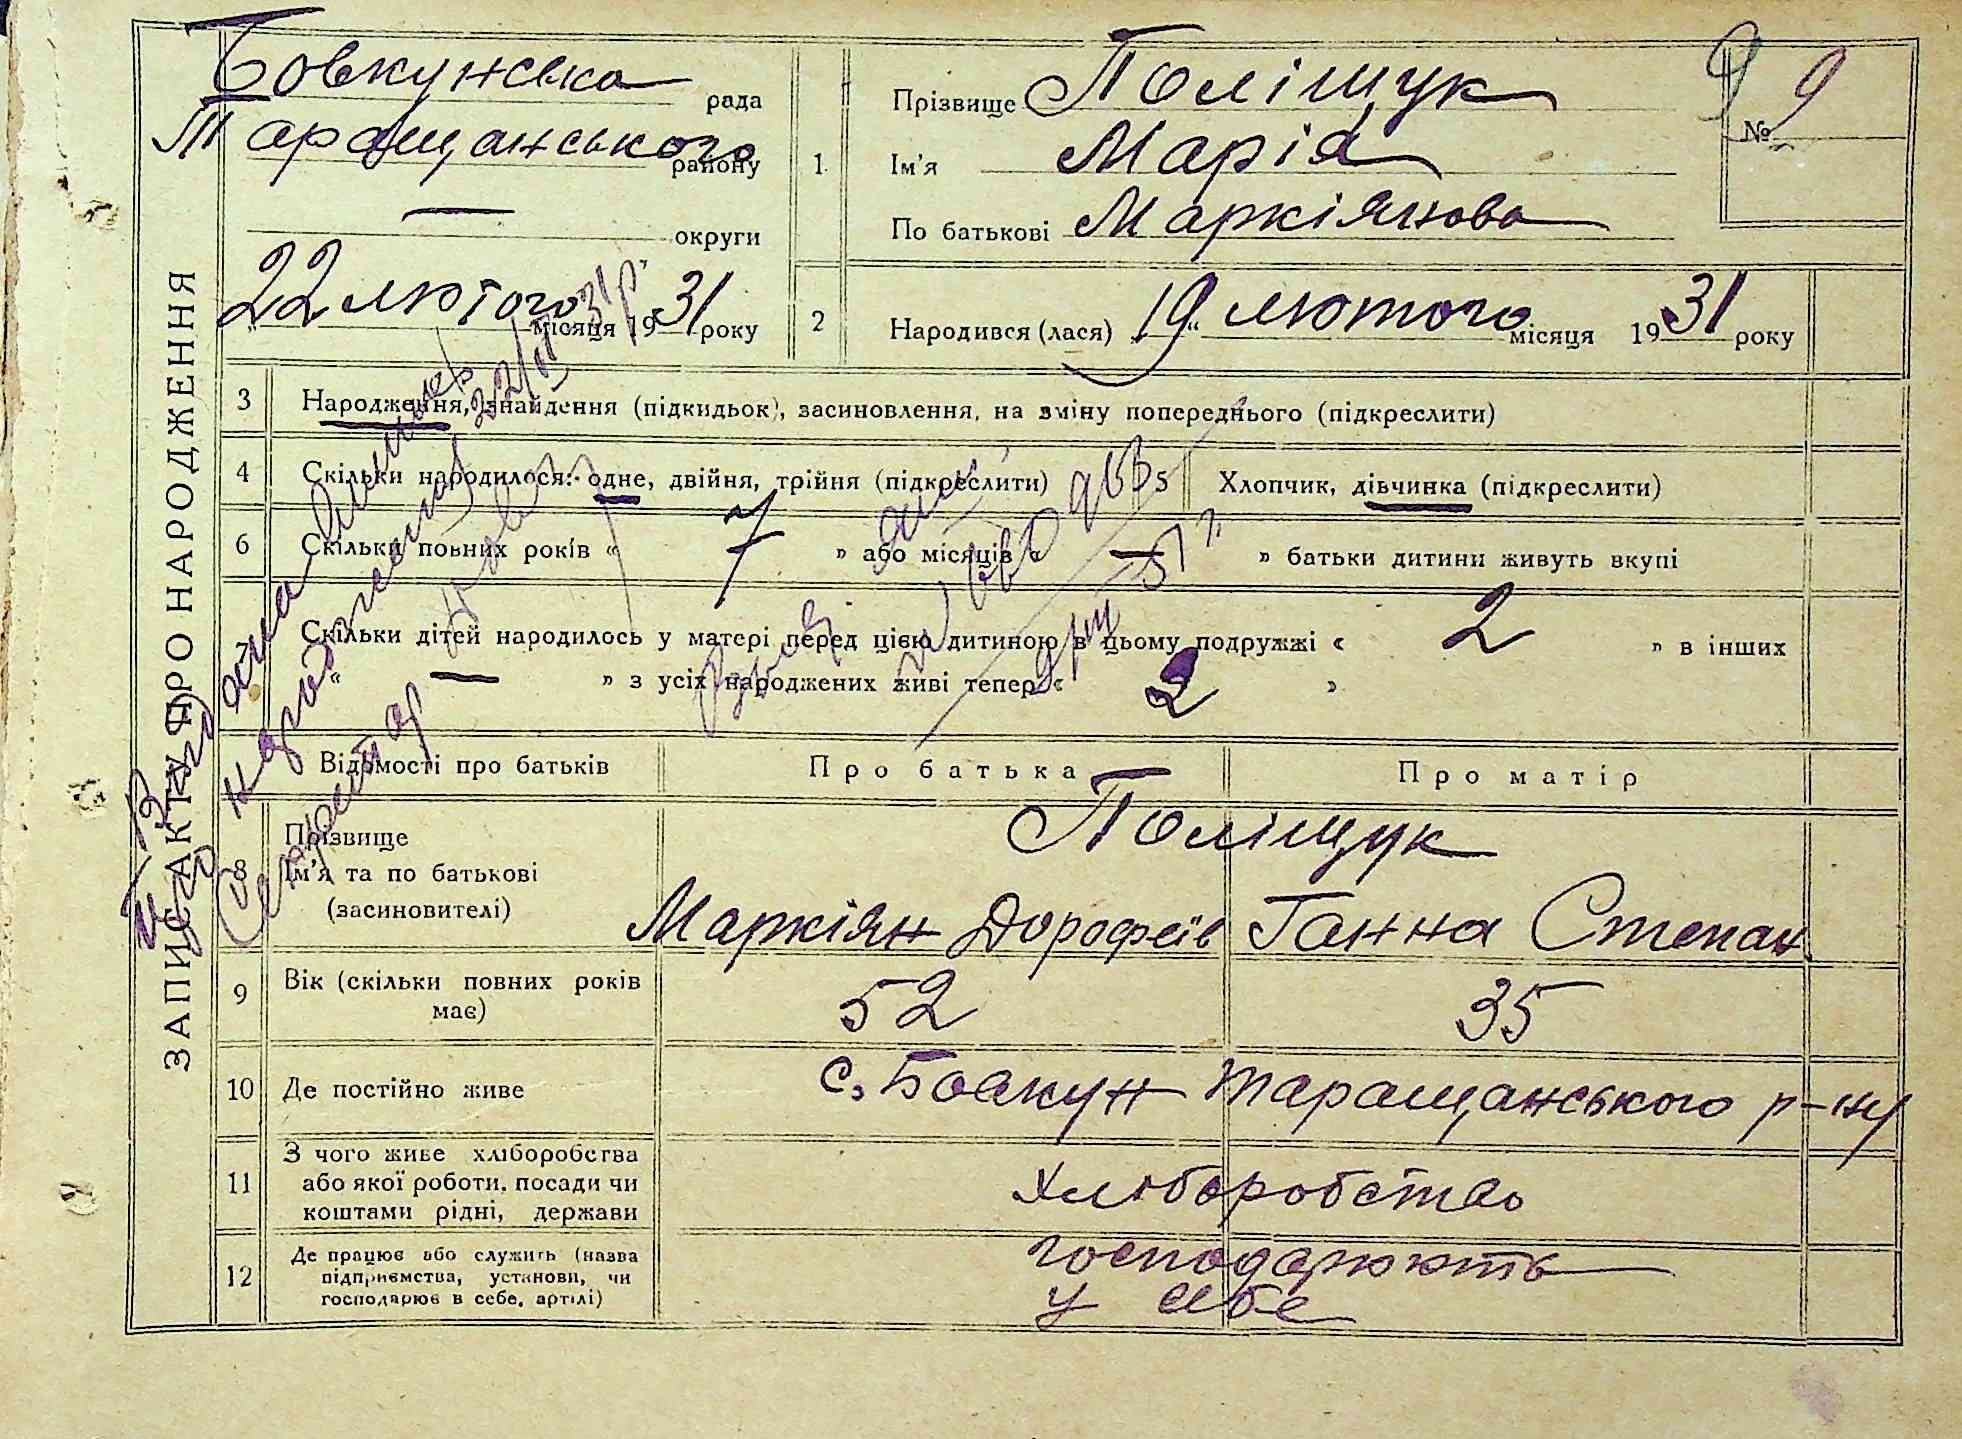 ЗАПИС АКТУ ПРО НАРОДЖЕННЯ
Бовкунська рада
Таращанського району
— округи
22 лютого місяця 1931 року
1 Прізвище Поліщук
Ім'я Марія
По батькові Маркіянова
№ 9
9
2 Народився (лася) 19 „ лютого місяця 1931 року
3 Народження, знайдення (підкидьок), засиновлення, на зміну попереднього (підкреслити)
4 Скільки народилося: одне, двійня, трійня (підкреслити) 5 Хлопчик, дівчинка (підкреслити)
6 Скільки повних років « 7 » або місяців « — » батьки дитини живуть вкупі
Скільки дітей народилось у матері перед цією дитиною в цьому подружжі « 2 » в інших
« — » з усіх народжених живі тепер « 2 »
Відомості про батьків Про батька Про матір
8 Прізвище Поліщук
Ім'я та по батькові
(засиновителі) Маркіян Дорофеїв Ганна Степан
9 Вік (скільки повних років
має) 52 35
10 Де постійно живе с. Бовкун Таращанського р-ну
11 З чого живе хліборобства
або якої роботи, посади чи
коштами рідні, держави Хліборобство
12 Де працює або служить (назва
підприємства, установи, чи
господарює в себе, артілі) господарюють
у себе
22/III 31р.
Секретар